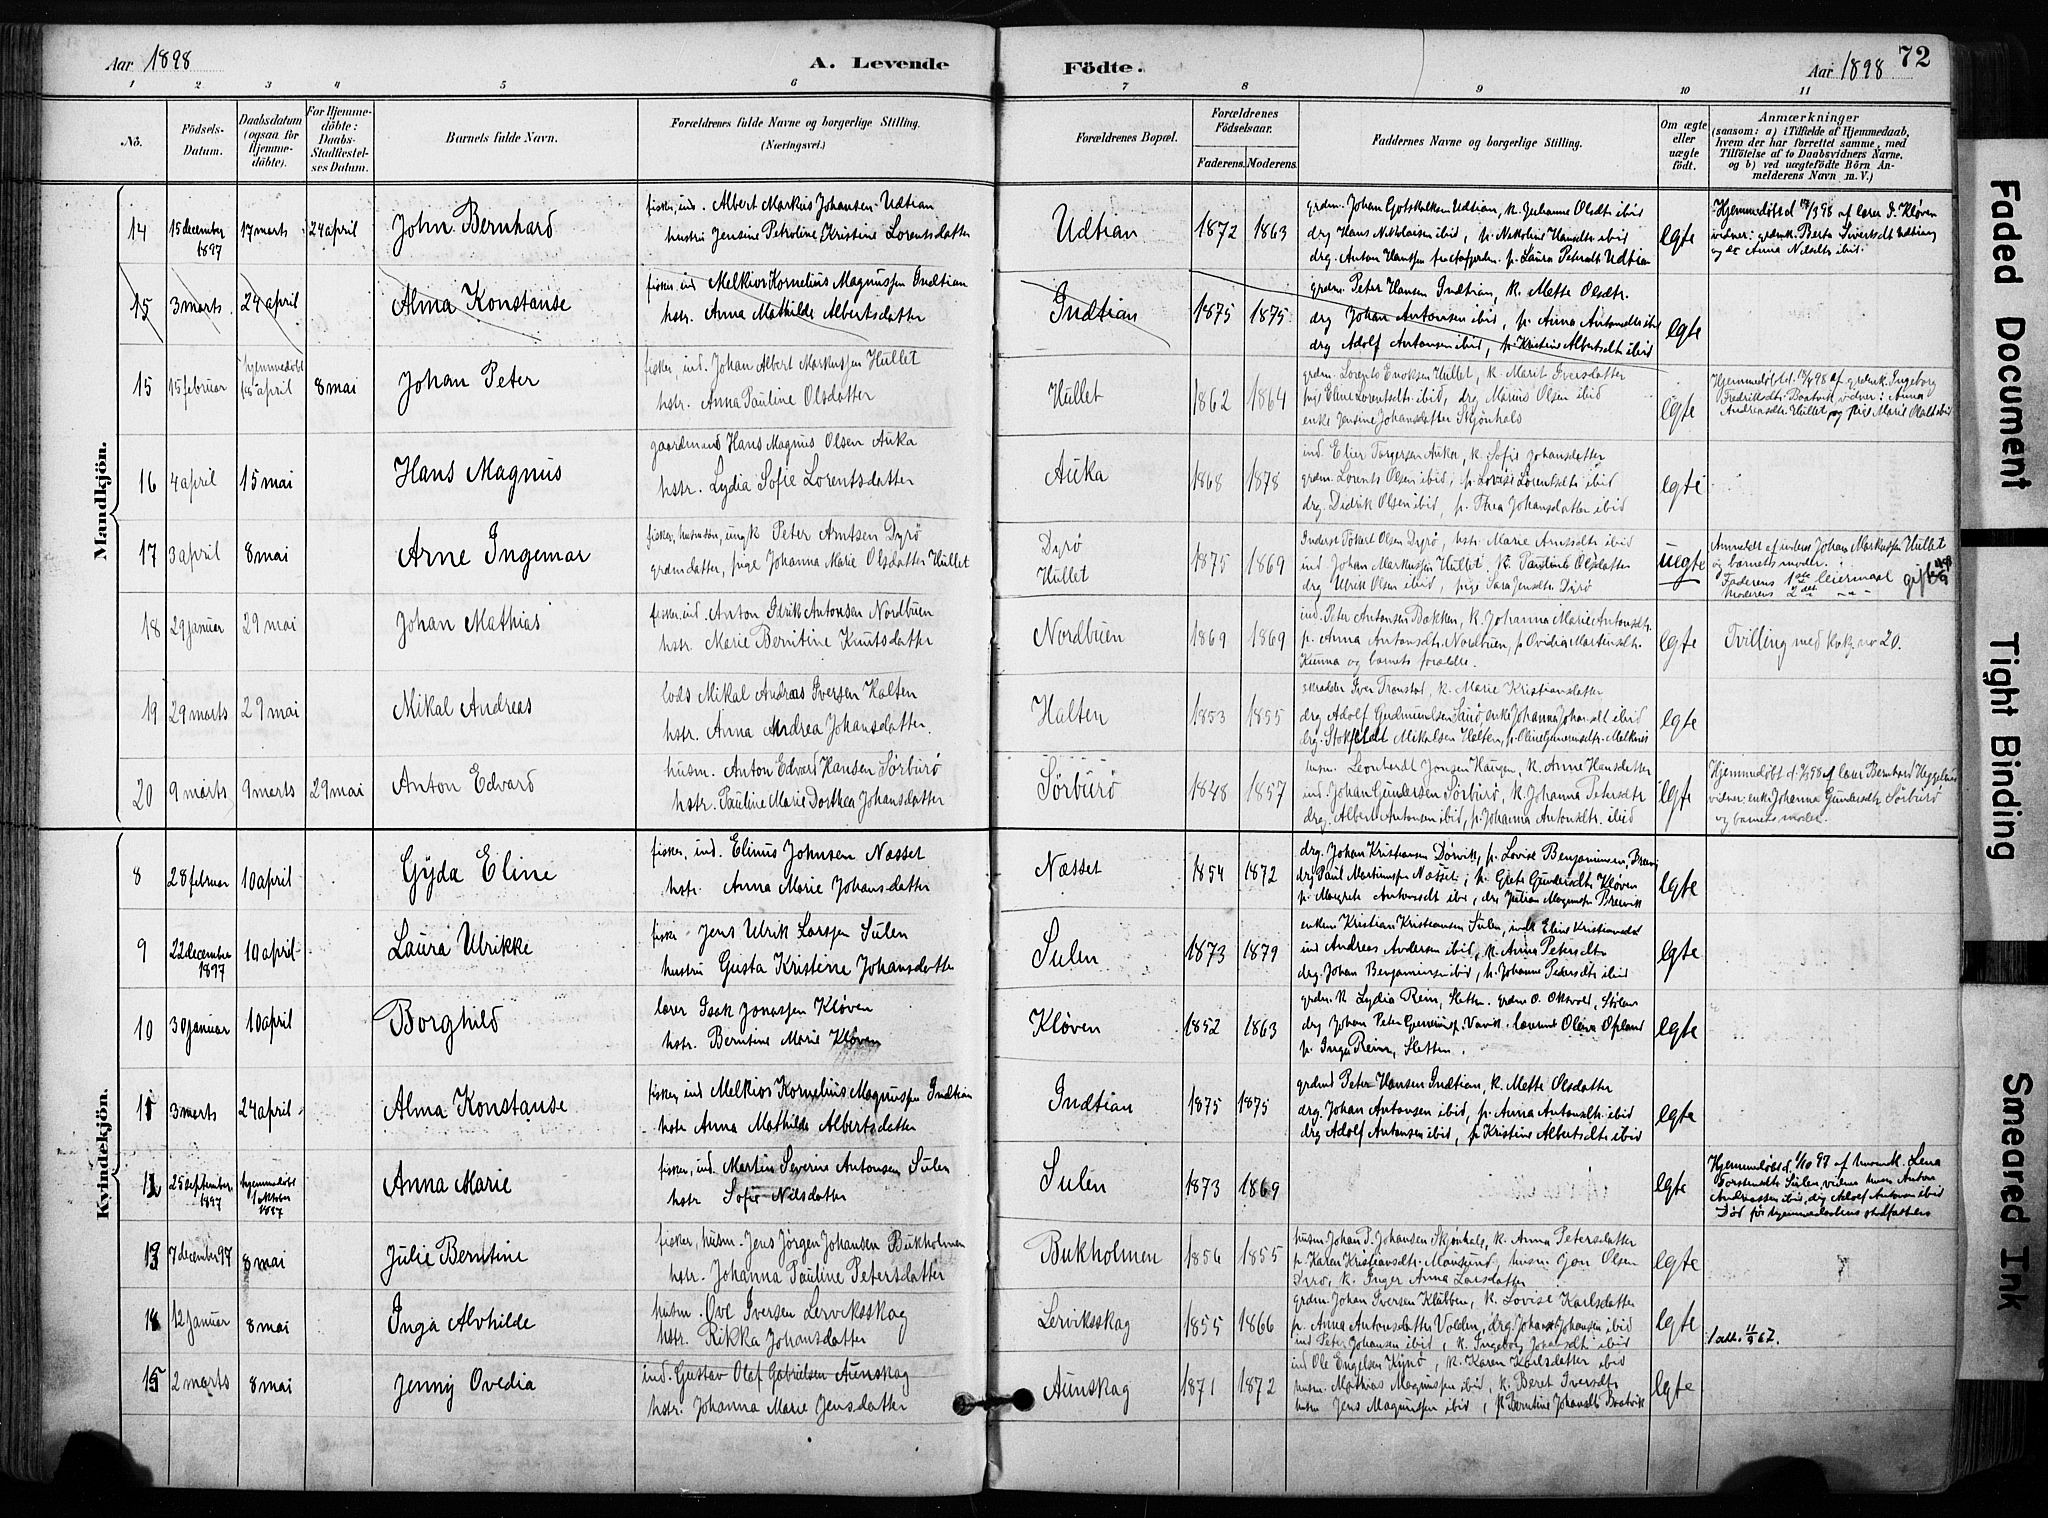 Aar 1898
A. Levende
Födte.
Aar 1898
72
1 2 3 4 5 6 7 8 9 10 11
No.
Födsels-Datum.
Daabsdatum (ogsaa for Hjemme-döbte).
For Hjemme-döbte: Daabs-Stadfæstelses Datum.
Barnets fulde Navn.
Forældrenes fulde Navne og borgerlige Stilling. (Næringsvei.)
Forældrenes Bopæl.
Forældrenes Födselsaar.
Faderens.
Moderens.
Faddernes Navne og borgerlige Stilling.
Om ægte eller uægte födt.
Anmærkninger
(saasom: a) i Tilfælde af Hjemmedaab, hvem der har forrettet samme, med Tilföielse af to Daabsvidners Navne, og b) ved uægtefödte Börn Anmelderens Navn m. V.)
Mandkjön.
14 15 december 1897 17 marts 24 april John Bernhard
fisker, ind. Albert Markus Johansen Udtian
hustru Jensine Petroline Kristine Lorentsdatter
Udtian 1872 1863
grdm. Johan Gotskalksen Udtian, k. Johanne Olsdtr ibid
drg Hans Nikolaisen ibid, p. Nikoline Hansdtr ibid
drg. Anton Hansen p. Laura Petersdtr Udtian
egte
Hjemmedøbt d. 17/3 98 af lærer I. Kløven
vidner: grdmk. Berta Sivertsdt Udtian
og Anna Nilsdtr ibid.
15 3 marts 24 april Alma Konstanse
fisker, ind Melkior Kornelius Magnussen Indtian
hstr. Anna Mathilde Albertsdatter
Indtian 1875 1875
grdm. Peter Hansen Indtian, k. Mette Olsdtr.
drg Johan Antonsen ibid, p. Anna Antonsdtr ibid
drg Adolf Antonsen ibid, p. Kristine Albertsdtr ibid
egte
15 15 februar hjemmedøbt april 8 mai Johan Peter
fisker, ind. Johan Albert Markussen Hullet
hstr. Anna Pauline Olsdatter
Hullet 1862 1864
grdm. Lorents Enoksen Hullet, k. Marit Iversdatter
pige Eline Lorentsdtr ibid, drg Marius Olsen ibid
enke Jensine Johansdatter Skjønhals
egte
Hjemmedøbt d. af grdmk. Ingeborg
Fredriksdtr Baatvik vidner: Anna
Andreasdtr Hullet og pige Marie Olsdtr ibid
16 4 april 15 mai Hans Magnus
gaardmand Hans Magnus Olsen Auka
hstr. Lydia Sofie Lorentsdatter
Auka 1868 1878
ind. Elier Torgersen Auka, k. Sofie Johansdatter
grdm. Lorents Olsen ibid, p. Lovise Lorentsdtr ibid
drg. Didrik Olsen ibid, p. Thea Johansdatter ibid
egte
17 3 april 8 mai Arne Ingemar
fisker, husmdsøn, ungk Peter Arntsen Dyrø
grdmdatter, pige Johanna Marie Olsdatter Hullet
Dyrø
Hullet 1875 1869
Inderst Olsen Dyrø, hstr. Marie Arntsdtr ibid
ind Johan Markussen Hullet, k. Pauline Olsdatter
drg Ulrik Olsen ibid, pige Sara Jensdtr Dyrø
uegte
Anmeldt af inderst Johan Markussen Hullet
og barnets moder.
Faderens 1ste leiermaal
Moderens 2det
18 29 januar 29 mai Johan Mathias
fisker, ind. Anton Idrik Antonsen Nordbuen
hstr. Marie Berntine Knutsdatter
Nordbuen 1869 1869
ind. Peter Antonsen Bakken, k. Johanna Marie Antonsdtr.
p. Anna Antonsdtr Nordbuen, p Ovidia Martensdtr.
Kunna og barnets forældre.
egte
Tvilling med no 20.
19 29 marts 29 mai Mikal Andreas
lods Mikal Andreas Iversen Halten
hstr. Anna Andrea Johansdatter.
Halten 1853 1855
skrædder Iver Tronstad, k. Marie Kristiansdatter
drg. Adolf Gudmundsen Sanø, enke Johanna Johansdt ibid
drg. Mikalsen Halten, p. Oline Gunerusdtr. Melknes
egte
20 9 marts 9 marts 29 mai Anton Edvard
husm. Anton Edvard Hansen Sørburø
hstr. Pauline Marie Dorthea Johansdatter
Sørburø 1848 1857
husm. Leonhardt Jonsen Haugen, k. Anne Hansdatter
ind. Johan Gundersen Sørburø, k. Johanna Petersdtr
drg. Albert Antonsen ibid, p. Johanna Antonsdtr. ibid
egte
Hjemmedøbt d. 9/3 98 af lærer Bernhard
vidner: enke Johanna Gundersdtr Sørburø
og barnets moder.
Kvindekjön.
8 28 februar 10 april Gyda Eline
fisker, ind. Elinus Johnsen Næsset
hstr. Anna Marie Johansdatter
Næsset 1854 1872
drg. Johan Kristiansen Dørvik, p. Lovise Benjaminsen,
drg Paul Martinussen Næsset, p. Grete Gundersdtr Kløven
p. Margrete Antonsdt ibid, drg Julian Magnussen Breivik
egte
9 22 december 1897 10 april Laura Ulrikke
fisker Jens Ulrik Larssen Sulen
hustru Gusta Kristine Johansdatter
Sulen 1873 1879
enkem Kristian Kristiansen Sulen,
ind Andreas Andersen ibid, k. Anna Petersdtr
drg. Johan Benjaminsen ibid, p. Johanne Petersdtr ibid
egte
10 30 januar 10 april Borghild
lærer Isak Jonassen Kløven
hstr. Berntine Marie Kløven
Kløven 1852 1863
grdm. k Lydia Rein, Sletten. grdm O. Oksvold,
drg Johan Peter
p. Inga Rein, Sletten.
egte
11 3 marts 24 april Alma Konstanse
fisker, ind Melkior Kornelius Magnussen Indtian
hstr Anna Mathilde Albertsdatter
Indtian 1875 1875
grdmd Peter Hansen Indtian, k. Mette Olsdatter
drg. Johan Antonsen ibid, p. Anna Antonsdtr ibid
drg Adolf Antonsen ibid, p Kristine Albertsdtr ibid
egte
12 25 september 1897 hjemmedøbt 1 oktober 1897 Anna Marie
fisker, ind. Martin Severin Antonsen Sulen
hstr Sofie Nilsdatter
Sulen 1873 1869
egte
Hjemmedøbt d. 1/10 97 af husmk. Lena
Torstensdtr Sulen, vidner husm Anton
Andreassen ibid, drg Adolf Antonsen ibid
Død før hjemmedaabens stadfæstelse
13 7 december 97 8 mai Julie Berntine
fisker, husm. Jens Jørgen Johansen Bukholmen
hstr. Johanna Pauline Petersdatter
Bukholmen 1856 1855
husm Johan P. Johansen Skjønhals, k. Anna Petersdatter
p. Karen Kristiansdtr. Mausund, husm. Jon Olsen
Dyrø, k. Inger Anna Larsdatter
egte
14 12 januar 8 mai Inga Alvhilde
husm. Ove Iversen Lerviksskag
hstr. Rikka Johansdatter
Lerviksskag 1855 1866
grdm. Johan Iversen Klubben, k. Lovise Karlsdatter
p. Anna Antonsdatter Volden, drg. Johan Johansen ibid
ind Peter Johansen ibid, k. Ingeborg ibid
egte
1 att. 11/9 62.
15 2 marts 8 mai Jenny Ovedia
ind. Gustav Olaf Gabrielsen Aunskag
hstr. Johanna Marie Jensdatter
Aunskag 1871 1872
ind Ole Engelsen Kyrø, k. Karen Karlsdatter ibid
husm. Mathias Magnussen ibid, k. Beret Iversdtr
husm Jens Magnussen ibid, p. Berntine Johansdtr Baatvik
egte
Faded Document
Tight Binding
Smeared Ink